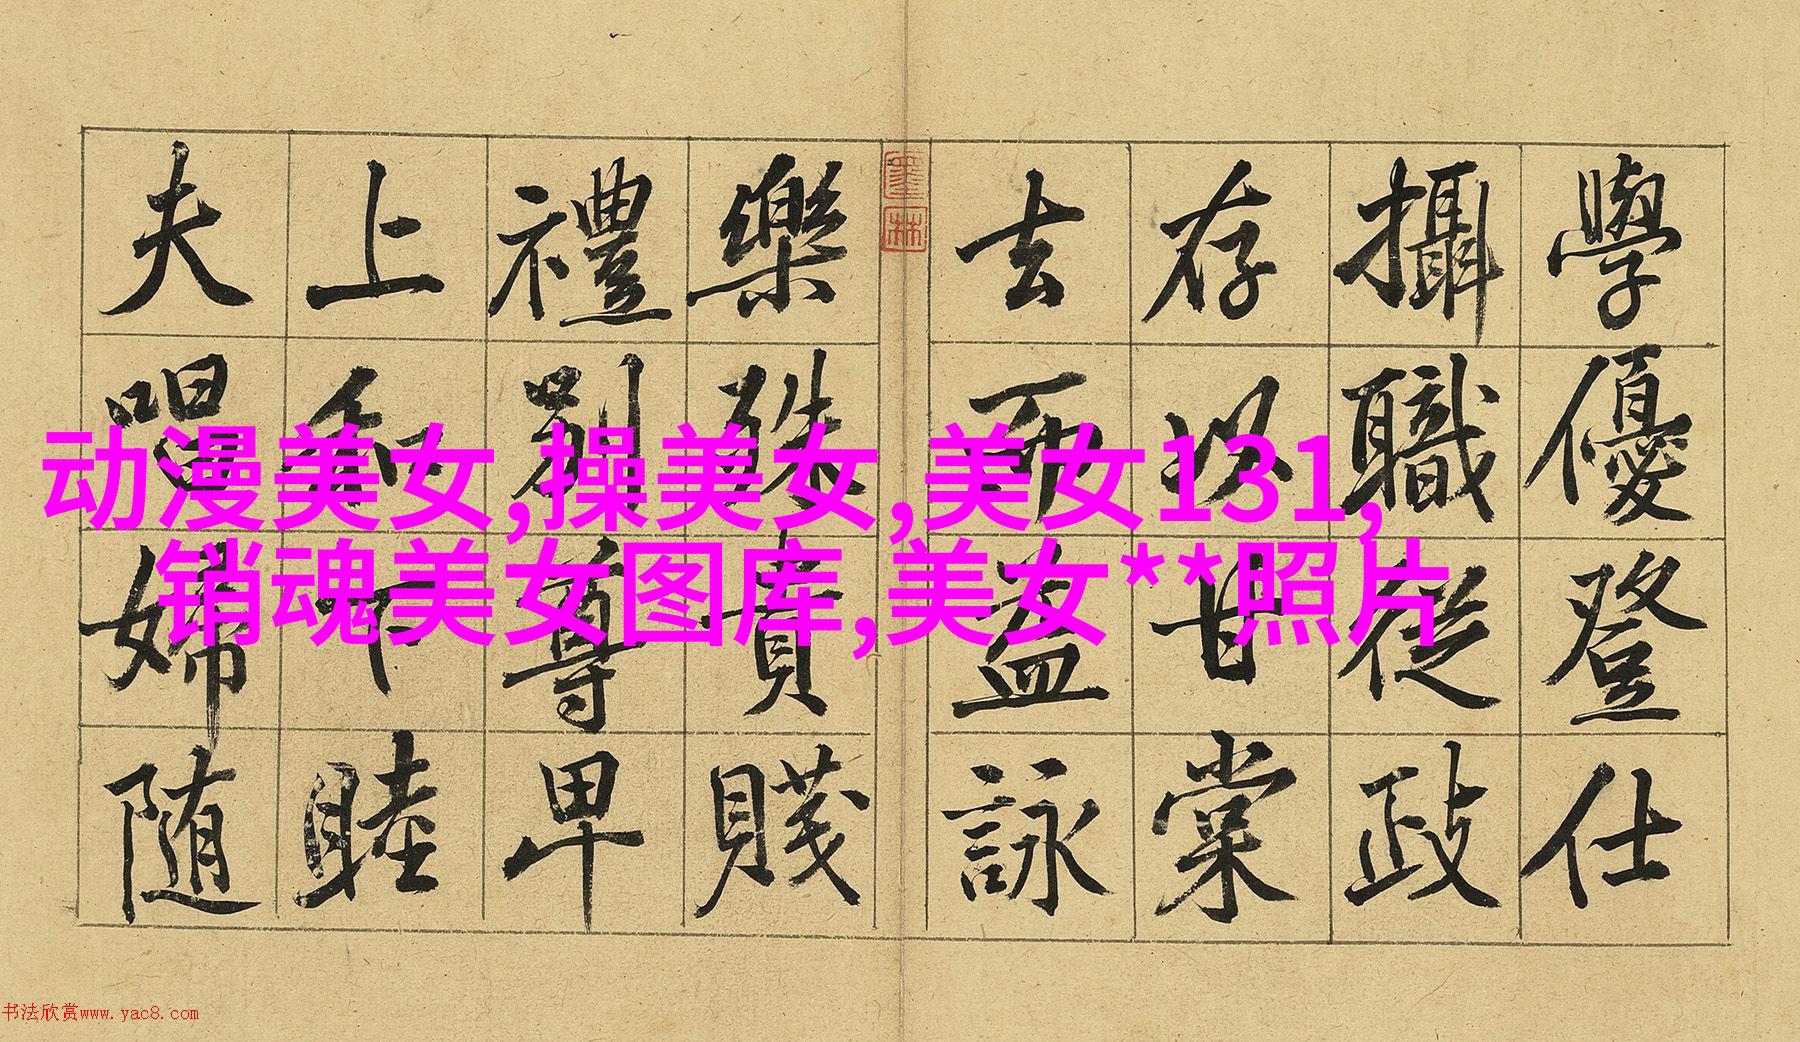 學優登仕
攝職從政
存以甘棠
去而益詠
墨林
樂殊貴賤
禮别尊卑
上和下睦
夫唱婦随
动漫美女,操美女,美女131,
销魂美女图库,美女**照片
书法欣赏www.yac8.com